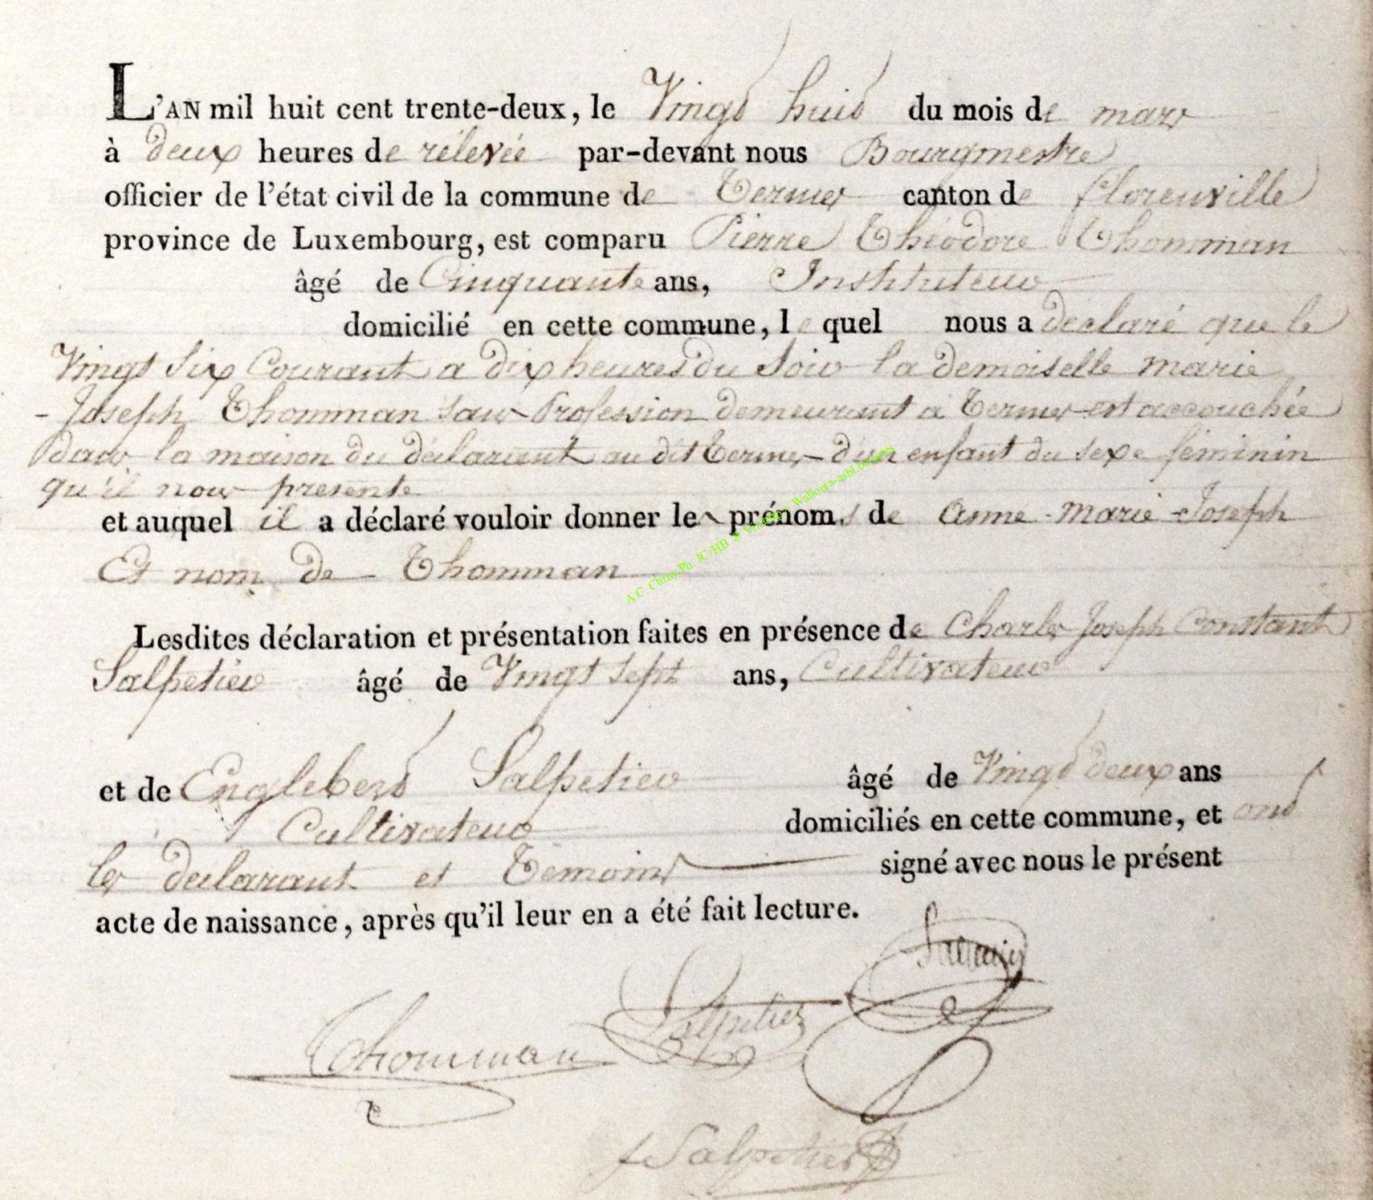 L'AN mil huit cent trente-deux, le Vingt huit du mois de mars
à deux heures de rélevée par-devant nous Bourgmestre
officier de l'état civil de la commune de Termes canton de florenville
province de Luxembourg, est comparu Pierre Théodore Thomman
âgé de Cinquante ans, Instituteur
domicilié en cette commune, le quel nous a declaré que le
Vingt Six Courant a dix heures du Soir la demoiselle marie
-Joseph Thomman sans Profession demeurant a Termes est accouchée
dans la maison du déclarant au dit termes d'un enfant du sexe féminin
qu'il nous presente
et auquel il a déclaré vouloir donner les prénoms de anne-marie-Joseph
Et nom de Thomman
Lesdites déclaration et présentation faites en présence de Charles Joseph Constant
Salpetier âgé de Vingt sept ans, Cultivateur
et de Englebert Salpetier âgé de Vingt deux ans
Cultivateur domiciliés en cette commune, et ont
les declarant et Temoins signé avec nous le présent
acte de naissance, après qu'il leur en a été fait lecture.
Thomman Salpetier
f Salpetier